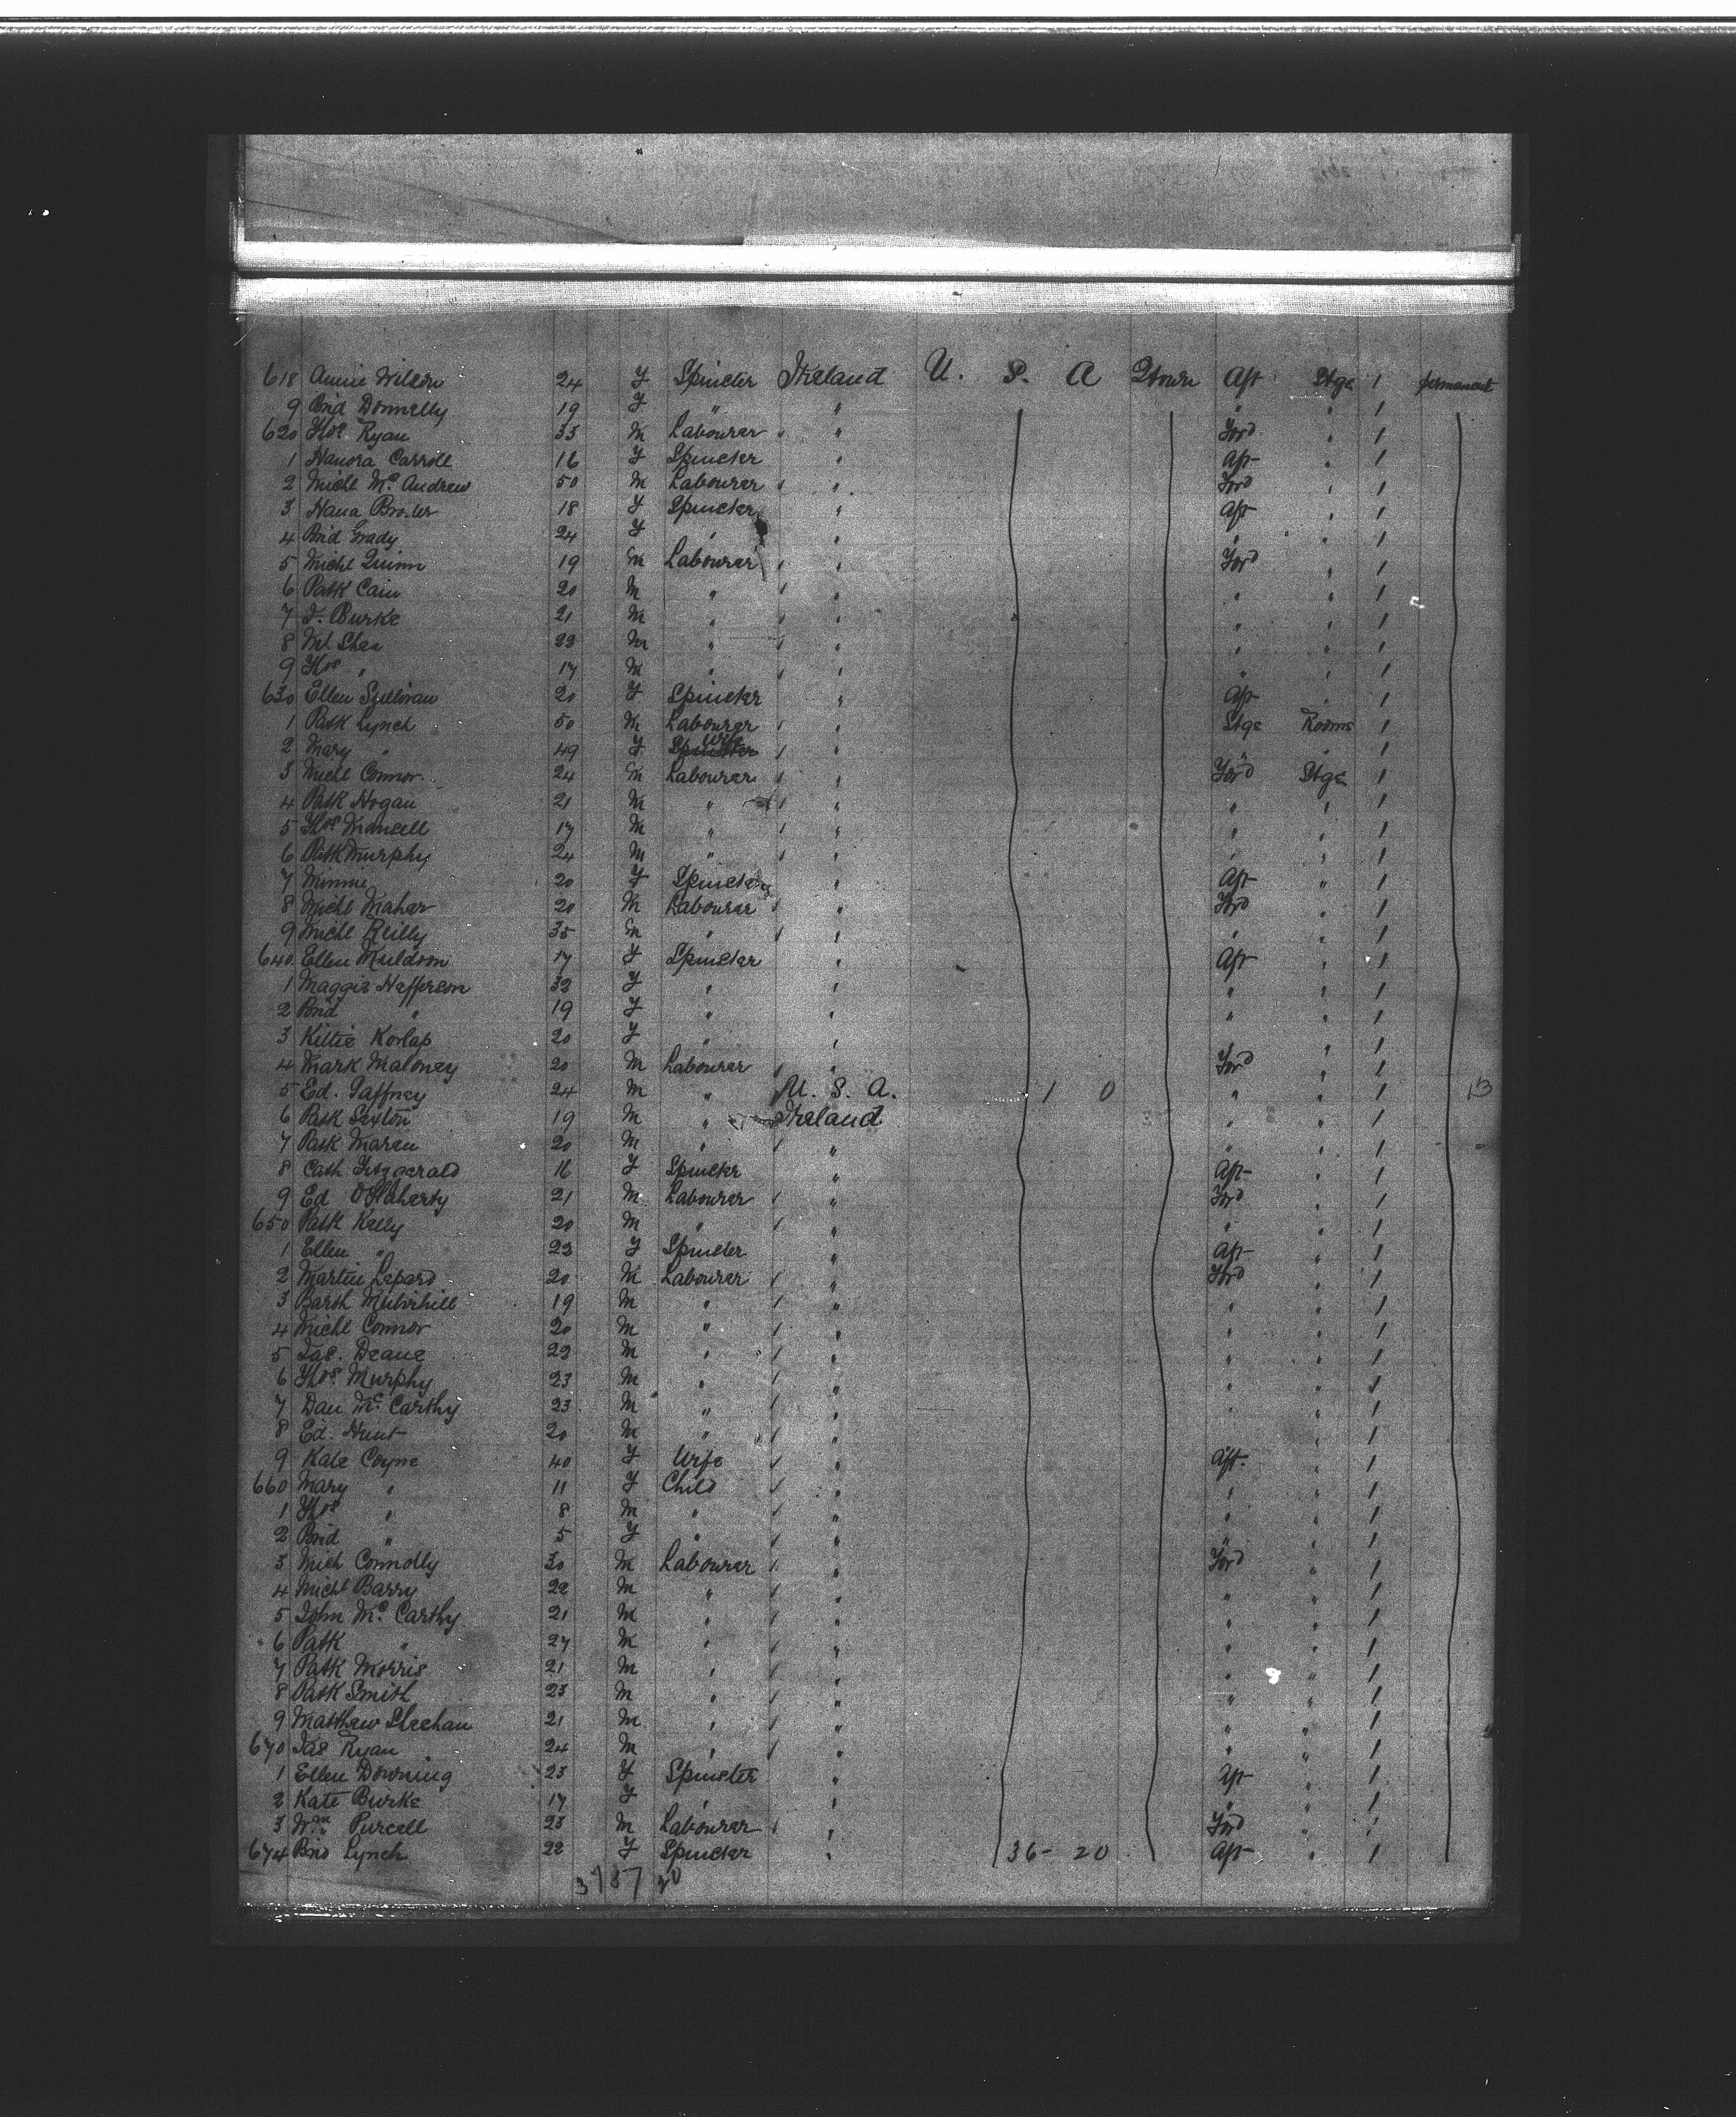 618 Annie Wilson 24 F Spinster Ireland U. S. A Qtown Aft Stge 1 permanent
9 Brid Donnelly 19 F " " " " 1
620 Thos Ryan 33 M Labourer " " Ford " 1
1 Hanora Carroll 16 F Spinster " Aft " 1
2 Michl McAndrew 50 M Labourer " " Ford " 1
3 Hana 18 F Spinster " Aft " 1
4 Brid Grady 24 F " " " " 1
5 Michl Quinn 19 M Labourer " " Ford " 1
6 Patk Cain 20 M " " " " " 1
7 T. Burke 21 M " " " " " 1
8 Ml. Shea M " " " " " 1
9 Thos " 17 M " " " " " 1
630 Ellen Sullivan 20 F Spinster " Aft " 1
1 Patk Lynch 50 M Labourer " " Stge Rooms 1
2 Mary " 49 F Wife " " " " 1
3 Michl Connor 24 M Labourer " " Ford Stge 1
4 Patk Hogan 21 M " " " " " 1
5 Thos Mansell 17 M " " " " " 1
6 Patk Murphy 24 M " " " " " 1
7 Minnie 20 F Spinster " Aft " 1
8 Michl Maher 20 M Labourer " " Ford " 1
9 Michl Reilly 35 M " " " " " 1
640 Ellen Muldoon 17 F Spinster " Aft " 1
1 Maggie Hefferson 32 F " " " " 1
2 Brid " 19 F " " " " 1
3 Kittie 20 F " " " " 1
4 Mark Maloney 20 M Labourer " " Ford " 1
5 Ed. Gaffney 24 M " U. S. A. 1 0 " " 1 13
6 Patk Sexton 19 M " Ireland " " 1
7 Patk Maren 20 M " " " " " 1
8 Cath Fitzgerald 16 F Spinster " Aft " 1
9 Ed O'Flaherty 21 M Labourer " " Ford " 1
650 Patk Kelly 20 M " " " " " 1
1 Ellen " 22 F Spinster " Aft " 1
2 Martin Lepard 20 M Labourer " " Ford " 1
3 Barth Mulvihill 19 M " " " " " 1
4 Michl Connor 20 M " " " " " 1
5 Jas. Deane 22 M " " " " " 1
6 Thos. Murphy 23 M " " " " " 1
7 Dan McCarthy 23 M " " " " " 1
8 Ed. Hunt 20 M " " " " 1
9 Kate Coyne 40 F Wife " " Aft. " 1
660 Mary " 11 F Child " " " " 1
1 Thos " 8 M " " " " " 1
2 Brid " 5 F " " " " " 1
3 Mich Connolly 30 M Labourer " " Ford " 1
4 Michl Barry 22 M " " " " " 1
5 John McCarthy 21 M " " " " " 1
6 Patk " 27 M " " " " " 1
7 Patk Morris 21 M " " " " " 1
8 Patk Smith 23 M " " " " " 1
9 Matthew Sheehan 21 M " " " " " 1
670 Jas Ryan 24 M " " " " " 1
1 Ellen Downing 23 F Spinster " Aft " 1
2 Kate Burke 17 F " " " " 1
3 Wm. Purcell 23 M Labourer " " Ford " 1
674 Brid Lynch 22 F Spinster " 36 - 20 Aft " 1
37 37 20